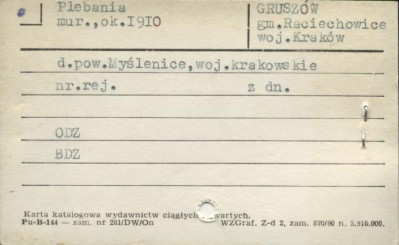 Plebania
mur., ok.1910
GRUSZÓW
gm.Raciechowice
woj.Kraków
d.pow.Myślenice,woj.krakowskie
nr.rej. z dn.
ODZ
BDZ
Karta katalogowa wydawnictw ciągłych zwartych.
Pu-B-144 — zam. nr 261/DW/On WZGraf. Z-d 2, zam. 670/80 n. 5.910.000.